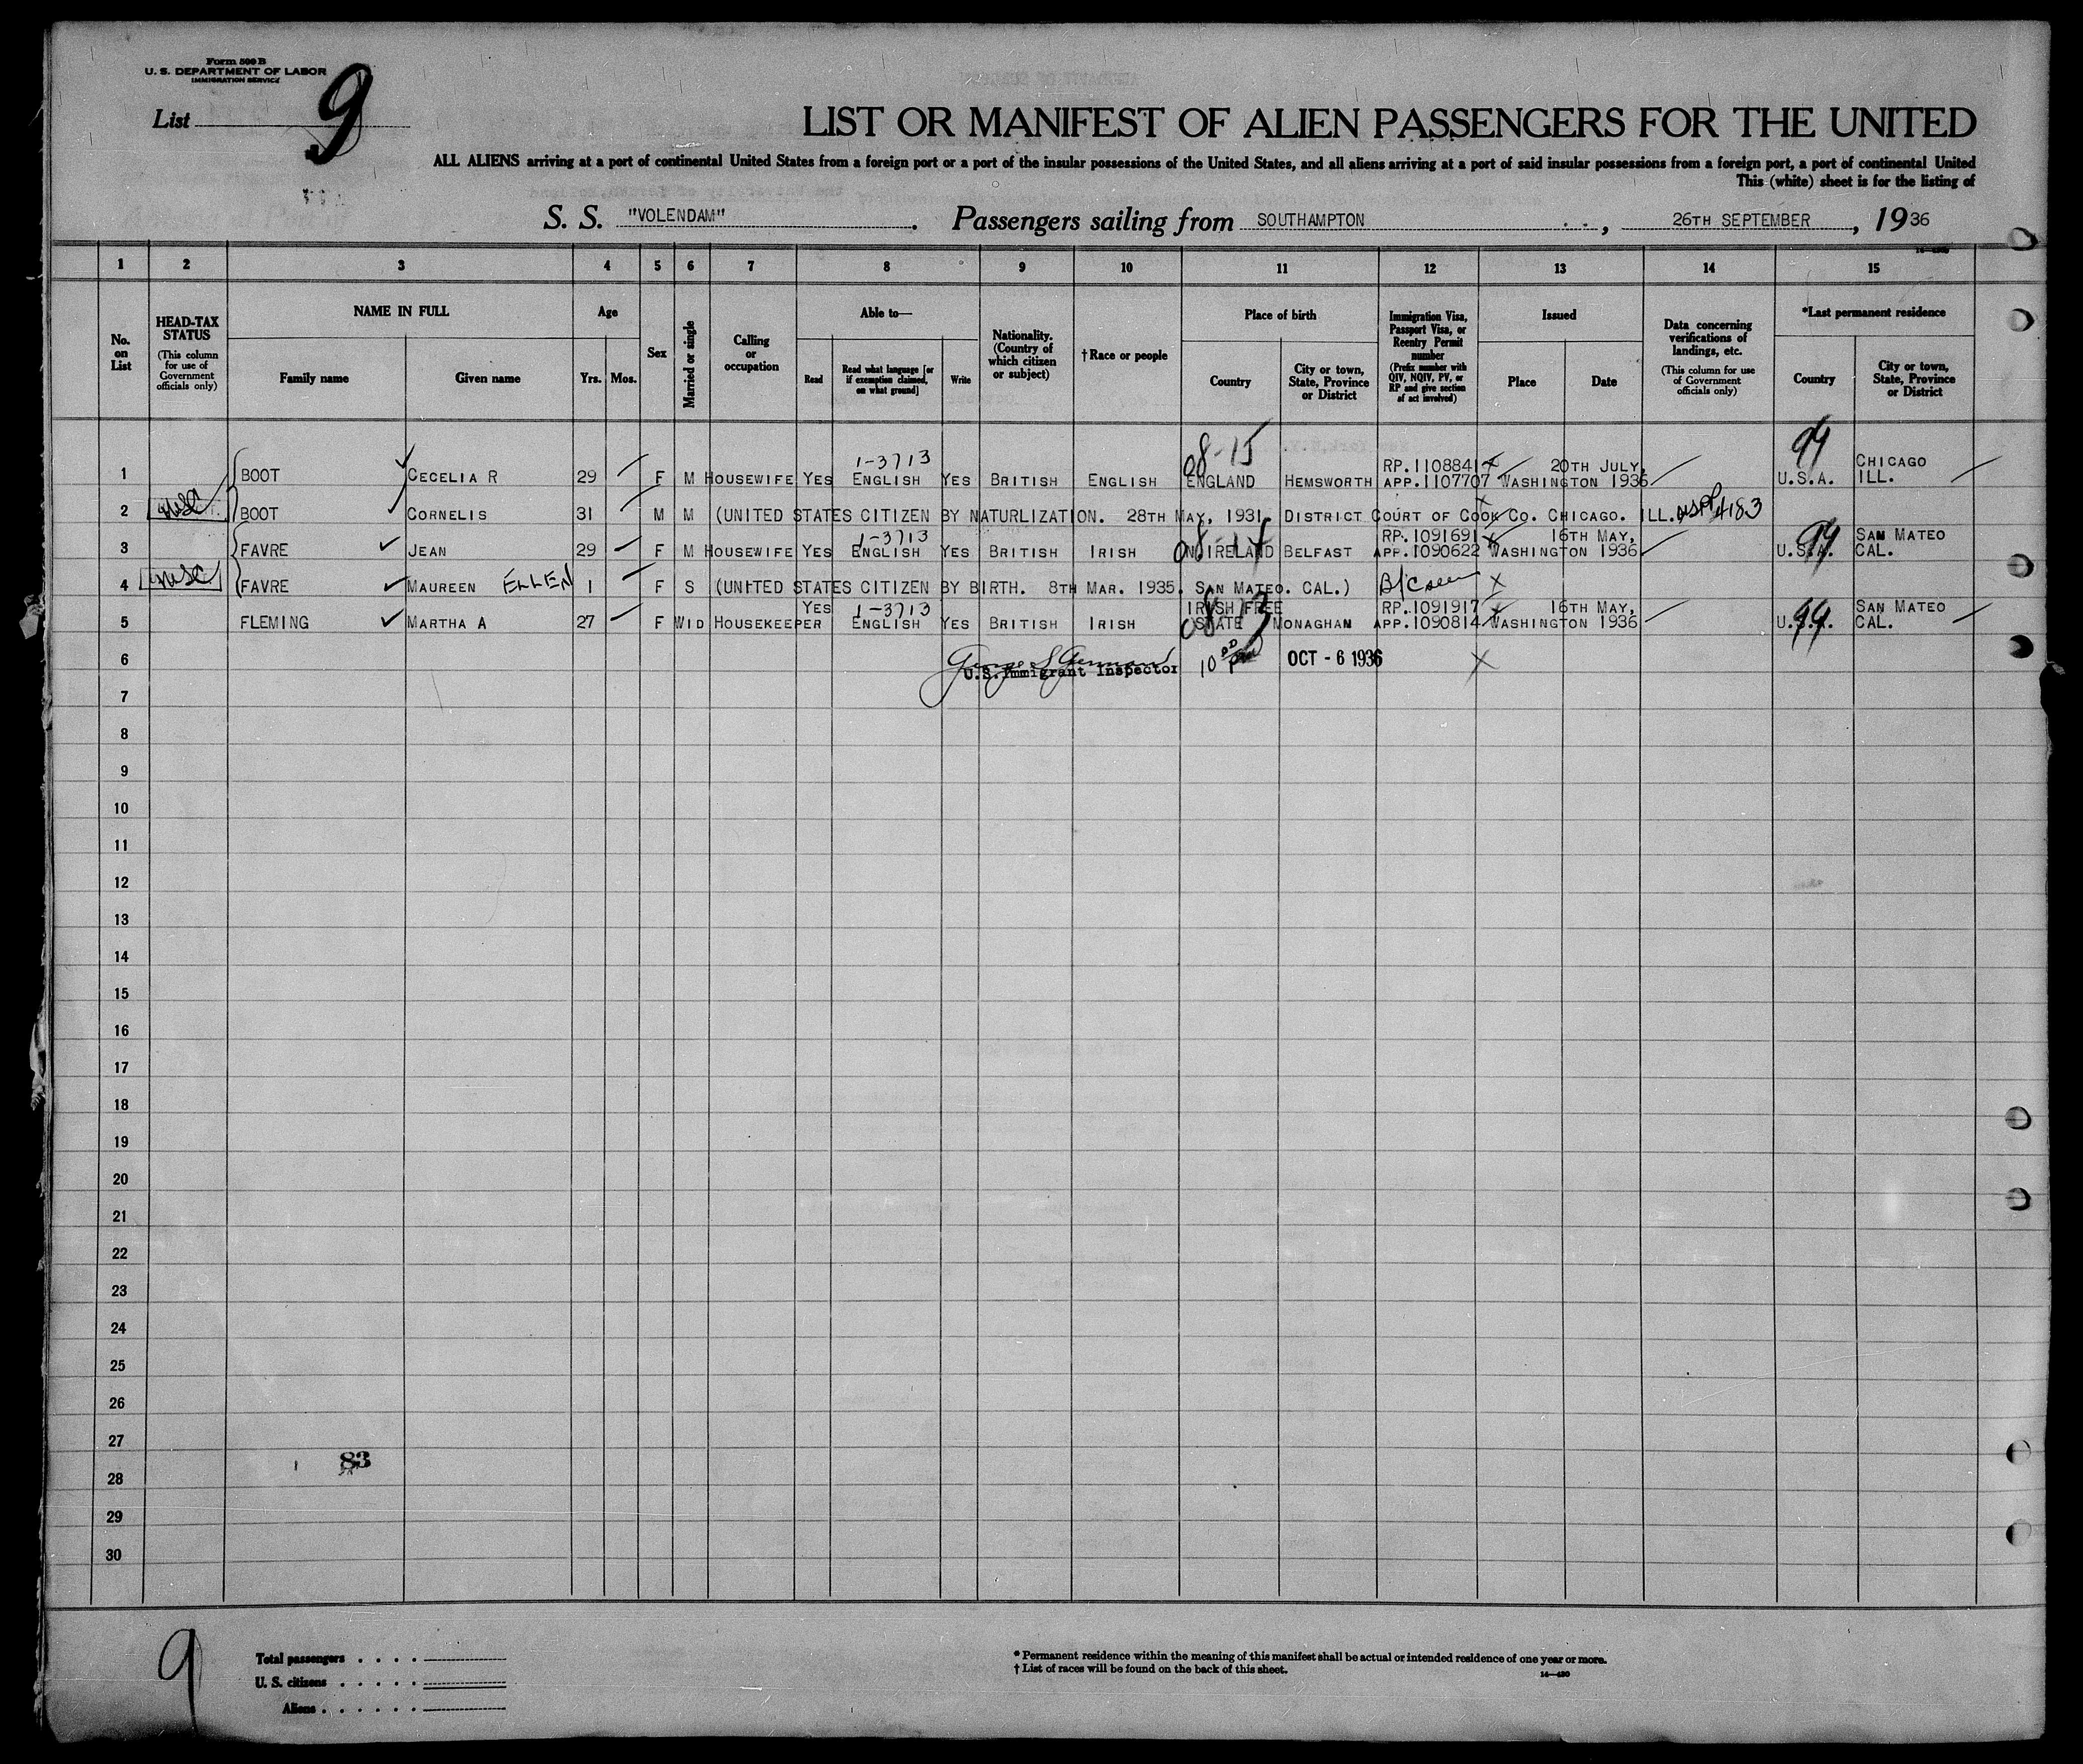 Form 500 B
U. S. DEPARTMENT OF LABOR
IMMIGRATION SERVICE
List 9
LIST OR MANIFEST OF ALIEN PASSENGERS FOR THE UNITED
ALL ALIENS arriving at a port of continental United States from a foreign port or a port of the insular possessions of the United States, and all aliens arriving at a port of said insular possessions from a foreign port, a port of continental United
This (white) sheet is for the listing of
S. S. "VOLENDAM". Passengers sailing from SOUTHAMPTON, 26TH SEPTEMBER, 1936
1 2 3 4 5 6 7 8 9 10 11 12 13 14 15
No. on List
HEAD-TAX STATUS (This column for use of Government officials only)
NAME IN FULL
Family name
Given name
Age
Yrs. Mos.
Sex
Married or single
Calling or occupation
Able to—
Read
Read what language [or if exemption claimed, on what ground]
Write
Nationality. (Country of which citizen or subject)
†Race or people
Place of birth
Country
City or town, State, Province or District
Immigration Visa, Passport Visa, or Reentry Permit number (Prefix number with QIV, NQIV, PV, or RP and give section of act involved)
Issued
Place
Date
Data concerning verifications of landings, etc. (This column for use of Government officials only)
*Last permanent residence
Country
City or town, State, Province or District
08-15 99
1-3713 RP.1108841 20TH JULY, CHICAGO
1 BOOT CECELIA R 29 F M HOUSEWIFE YES ENGLISH YES BRITISH ENGLISH ENGLAND HEMSWORTH APP.1107707 WASHINGTON 1936 U.S.A. ILL.
2 BOOT CORNELIS 31 M M (UNITED STATES CITIZEN BY NATURLIZATION. 28TH MAY, 1931. DISTRICT COURT OF COOK CO. CHICAGO. ILL.
1-3713 08-14 RP.1091691 16TH MAY, 99 SAN MATEO
3 FAVRE JEAN 29 F M HOUSEWIFE YES ENGLISH YES BRITISH IRISH N.IRELAND BELFAST APP.1090622 WASHINGTON 1936 U.S.A. CAL.
4 FAVRE MAUREEN ELLEN 1 F S (UNITED STATES CITIZEN BY BIRTH. 8TH MAR. 1935. SAN MATEO. CAL.) B/C seen
YES 1-3713 IRISH FREE RP.1091917 16TH MAY, SAN MATEO
5 FLEMING MARTHA A 27 F WID HOUSEKEEPER ENGLISH YES BRITISH IRISH STATE MONAGHAN APP.1090814 WASHINGTON 1936 U.S.A. CAL.
6 U.S. Immigrant Inspector OCT - 6 1936
7
8
9
10
11
12
13
14
15
16
17
18
19
20
21
22
23
24
25
26
27
83
28
29
30
9
Total passengers
U. S. citizens
Aliens
* Permanent residence within the meaning of this manifest shall be actual or intended residence of one year or more.
† List of races will be found on the back of this sheet.
14—480